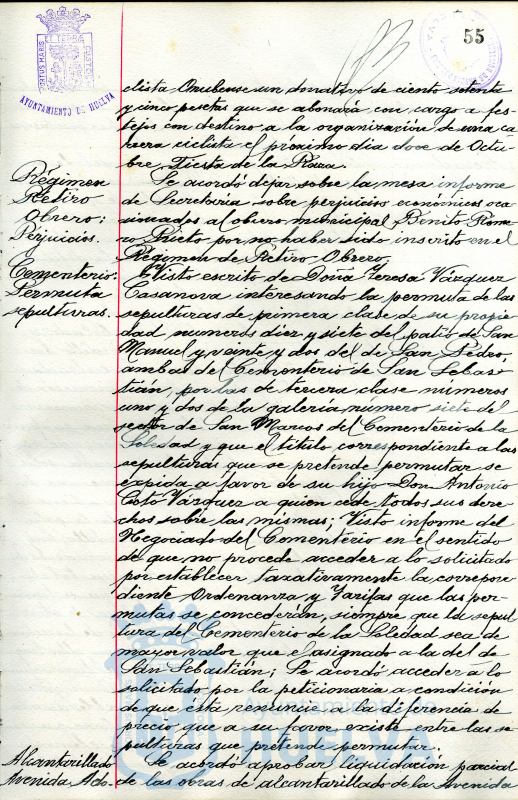 55
AYUNTAMIENTO DE HUELVA
clista Onubense un donativo de ciento setenta
y cinco pesetas que se abonará con cargo a fes-
tejos con destino a la organización de una ca-
rrera ciclista el próximo día doce de Octu-
bre, Fiesta de la Raza.
Régimen
Retiro
Obrero:
Perjuicios.
Se acordó dejar sobre la mesa informe
de Secretaria sobre perjuicios económicos oca-
sionados al obrero municipal Benito Rome-
ro Prieto por no haber sido inscrito en el
Régimen de Retiro Obrero.
Cementerio:
Permuta
sepulturas.
Visto escrito de Doña Teresa Vázquez
Casanova interesando la permuta de las
sepulturas de primera clase de su propie-
dad, números diez y siete del patio de San
Manuel y veinte y dos del de San Pedro,
ambas del Cementerio de San Sebas-
tián, por las de tercera clase números
uno y dos de la galería número siete del
sector de San Marcos del Cementerio de la
Soledad y que el título correspondiente a las
sepulturas que se pretende permutar se
expida a favor de su hijo Don Antonio
Coto Vázquez a quien cede todos sus dere-
chos sobre las mismas; Visto informe del
Negociado del Cementerio en el sentido
de que no procede acceder a lo solicitado
por establecer taxativamente la correspon-
diente Ordenanza y Tarifas que las per-
mutas se concederán, siempre que la sepul-
tura del Cementerio de la Soledad sea de
mayor valor que el asignado a la del de
San Sebastián; Se acordó acceder a lo
solicitado por la peticionaria a condición
de que ésta renuncie a la diferencia de
precio que a su favor existe entre las se-
pulturas que pretende permutar.
Alcantarillado
Avenida Ado-
Se acordó aprobar liquidación parcial
de las obras de alcantarillado de la Avenida
Ayuntamiento de
HUELVA